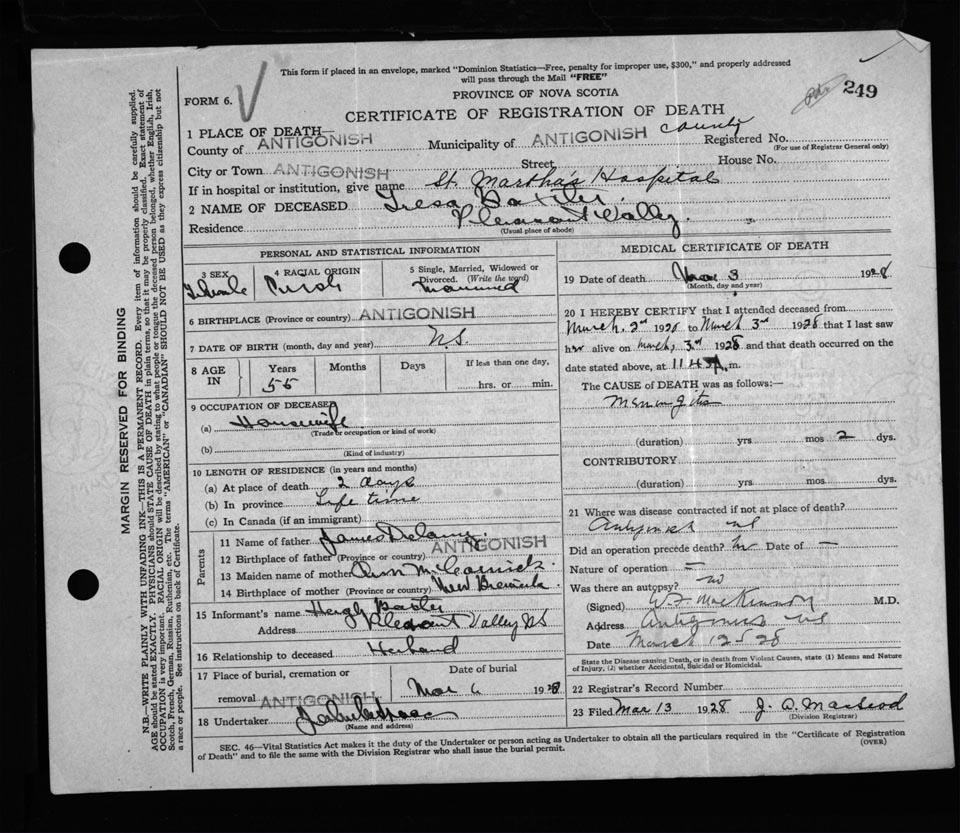 This form if placed in an envelope, marked "Dominion Statistics—Free, penalty for improper use, $300," and properly addressed
will pass through the Mail "FREE"
249
PROVINCE OF NOVA SCOTIA
FORM 6.
CERTIFICATE OF REGISTRATION OF DEATH
1 PLACE OF DEATH—
County of ANTIGONISH Municipality of ANTIGONISH County Registered No.
(For use of Registrar General only)
City or Town ANTIGONISH Street House No.
If in hospital or institution, give name St. Martha's Hospital
2 NAME OF DECEASED Tresa Baxter
Residence Pleasant Valley
(Usual place of abode)
PERSONAL AND STATISTICAL INFORMATION
3 SEX 4 RACIAL ORIGIN 5 Single, Married, Widowed or Divorced. (Write the word)
Female Irish Married
6 BIRTHPLACE (Province or country) ANTIGONISH
N.S.
7 DATE OF BIRTH (month, day and year)
8 AGE IN Years Months Days If less than one day,
55 hrs. or min.
9 OCCUPATION OF DECEASED
(a) Housewife
(Trade or occupation or kind of work)
(b)
(Kind of industry)
10 LENGTH OF RESIDENCE (in years and months)
(a) At place of death 2 days
(b) In province Life time
(c) In Canada (if an immigrant)
Parents
11 Name of father James Delaney
12 Birthplace of father (Province or country) ANTIGONISH
13 Maiden name of mother Ann McCormick
14 Birthplace of mother (Province or country) New Brunswick
15 Informant's name Baxter
Address Pleasant Valley NS
16 Relationship to deceased Husband
17 Place of burial, cremation or removal ANTIGONISH Date of burial Mar 6 1928
18 Undertaker
(Name and address)
MEDICAL CERTIFICATE OF DEATH
19 Date of death Mar 3 1928
(Month, day and year)
20 I HEREBY CERTIFY that I attended deceased from
March 2nd 1928 to March 3rd 1928 that I last saw
her alive on March 3rd 1928 and that death occurred on the
date stated above, at 11 45 A. m.
The CAUSE of DEATH was as follows:—
Meningitis
(duration) yrs mos 2 dys.
CONTRIBUTORY
(duration) yrs. mos dys.
21 Where was disease contracted if not at place of death?
Antigonish NS
Did an operation precede death? No Date of —
Nature of operation —
Was there an autopsy? no
(Signed) W F MacKinnon M.D.
Address Antigonish NS
Date March 12 28
State the Disease causing Death, or in death from Violent Causes, state (1) Means and Nature
of Injury, (2) whether Accidental, Suicidal or Homicidal.
22 Registrar's Record Number
23 Filed Mar 13 1928 J. D. MacLeod
(Division Registrar)
SEC. 46—Vital Statistics Act makes it the duty of the Undertaker or person acting as Undertaker to obtain all the particulars required in the "Certificate of Registration
of Death" and to file the same with the Division Registrar who shall issue the burial permit.
(OVER)
MARGIN RESERVED FOR BINDING
N.B.—WRITE PLAINLY WITH UNFADING INK—THIS IS A PERMANENT RECORD. Every item of information should be carefully supplied.
AGE should be stated EXACTLY. PHYSICIANS should STATE CAUSE OF DEATH in plain terms, so that it may be properly classified. Exact statement of
OCCUPATION is very important. RACIAL ORIGIN will be described by stating to what people or tongue the deceased person belonged, whether English, Irish,
Scotch, French, German, Russian, Ruthenian, etc. The terms "AMERICAN" or "CANADIAN" SHOULD NOT BE USED as they express citizenship but not
a race or people. See instructions on back of Certificate.